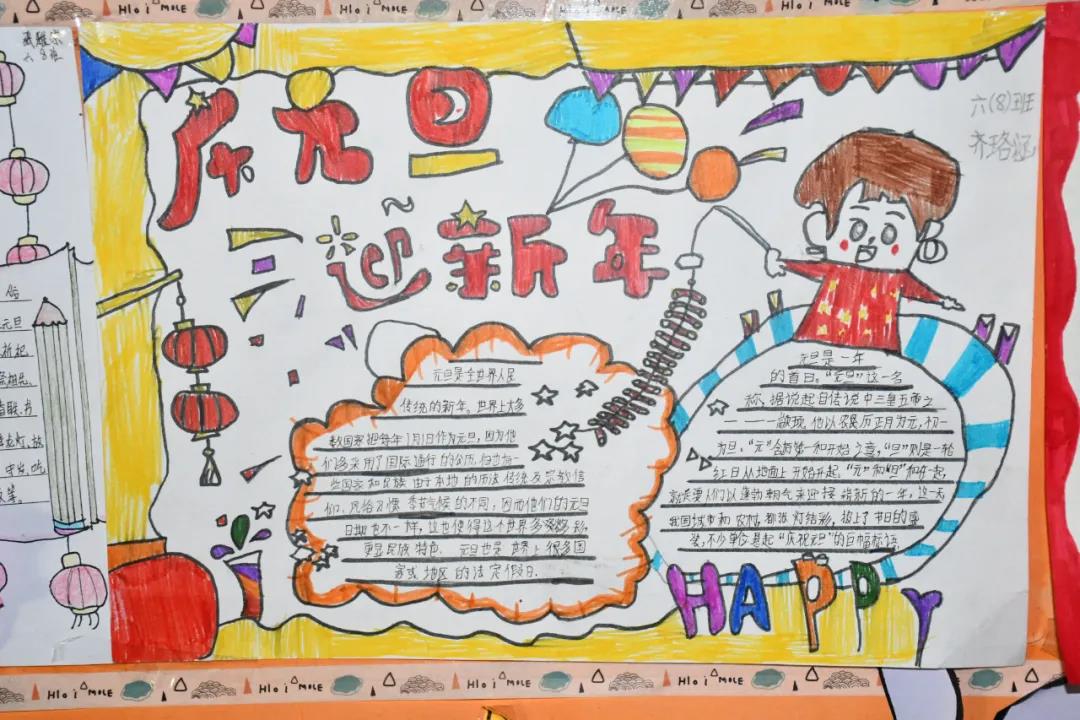 六(8)班
庆元旦
迎新年
元旦是全世界人民
传统的新年。世界上大多
数国家把每年1月1日作为元旦,因为他
们多采用了国际通行的公历,但也有一
些国家和民族由于本地的历法传统及宗教信
仰、风俗习惯、季节气候的不同,因而他们的元旦
日期也不一样,这也使得这个世界多姿多彩,
更显民族特色。元旦也是世界上很多国
家或地区的法定假日.
元旦是一年
的首日。“元旦”这一名
称,据说起自传说中三皇五帝之
一——颛顼,他以农历正月为元,初一
为旦,“元”含有第一和开始之意,“旦”则是一轮
红日从地面上开始升起,“元”和“旦”和在一起,
就是要人们以蓬勃朝气来迎接崭新的一年。这一天
我国城市和农村都张灯结彩,披上了节日的盛
装,不少单位悬起“庆祝元旦”的巨幅标语
HAPPY
六8班
元旦
Hloi MOLE
Hloi MOLE
Hloi MOLE
Hloi MOLE